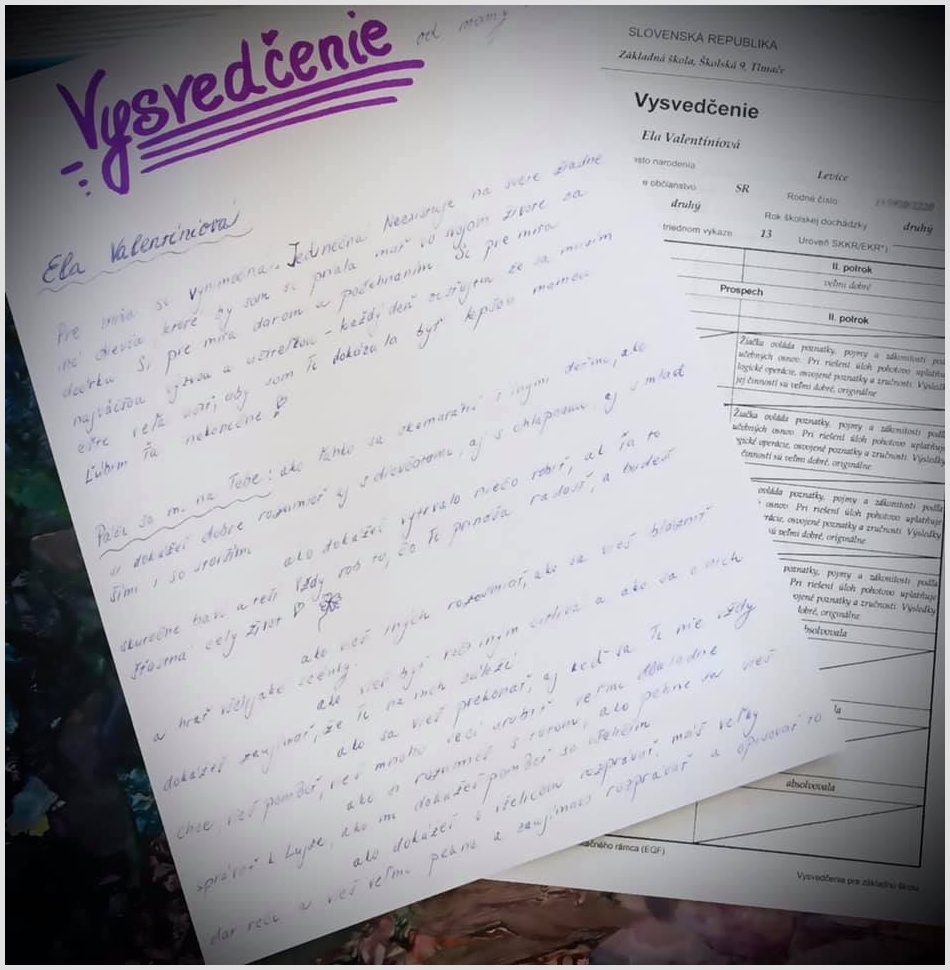 Vysvedčenie od mamy
Ela Valentíniová
Pre mňa si výnimočná. Jedinečná. Neexistuje na svete žiadne
iné dievča, ktoré by som si priala mať vo svojom živote za
dcérku. Si pre mňa darom a požehnaním. Si pre mňa
najväčšou výzvou a učiteľkou - každý deň zisťujem že sa musím
ešte veľa učiť, aby som Ti dokázala byť lepšou mamou
Ľúbim Ťa nekonečne
Páči sa mi na Tebe: ako ľahko sa skamarátiš s inými deťmi, ako
si dokážeš dobre rozumieť aj s dievčatami, aj s chlapcami aj s mlad
šími i so staršími
ako dokážeš vytrvalo niečo robiť, ak Ťa to
skutočne baví a teší. Vždy rob to, čo Ti prináša radosť, a budeš
šťastná celý život
ako vieš iných rozosmiať, ako sa vieš blázniť
a hrať všelijaké scénky.
ako vieš byť voči iným citlivá a ako sa o nich
dokážeš zaujímať, že Ti na nich záleží
ako sa vieš prekonať, aj keď sa Ti nie vždy
chce, vieš pomôcť, vieš mnoho vecí urobiť veľmi dôkladne
ako si rozumieš s ako pekne sa vieš
správať k ako mi dokážeš pomôcť so všeličím
ako dokážeš o všeličom rozprávať, máš veľký
dar reči a vieš veľmi pekne a zaujímavo rozprávať a opisovať to
SLOVENSKÁ REPUBLIKA
Základná škola, Školská 9, Tlmače
Vysvedčenie
Ela Valentíniová
sto narodenia Levice
e občianstvo SR Rodné číslo
druhý Rok školskej dochádzky druhý
triednom výkaze 13 Úroveň SKKR/EKR*)
II. polrok
veľmi dobré
Prospech
II. polrok
Žiačka ovláda poznatky, pojmy a zákonitosti pod
učebných osnov. Pri riešení úloh pohotovo uplatňu
logické operácie, osvojené poznatky a zručnosti. Výsledk
jej činnosti sú veľmi dobré, originálne
Žiačka ovláda poznatky, pojmy a zákonitosti po
učebných osnov. Pri riešení úloh pohotovo uplatňu
gické operácie, osvojené poznatky a zručnosti. Výsledky
činnosti sú veľmi dobré, originálne
ovláda poznatky, pojmy a zákonitosti podľa
osnov. Pri riešení úloh pohotovo uplatňuj
rácie, osvojené poznatky a zručnosti. Výsledky
ú veľmi dobré, originálne
poznatky, pojmy a zákonitosti podľa
Pri riešení úloh pohotovo uplatňuje
ojené poznatky a zručnosti. Výsledky
dobré, originálne
bsolvovala
la
absolvovala
ačného rámca (EQF)
Vysvedčenie pre základnú školu